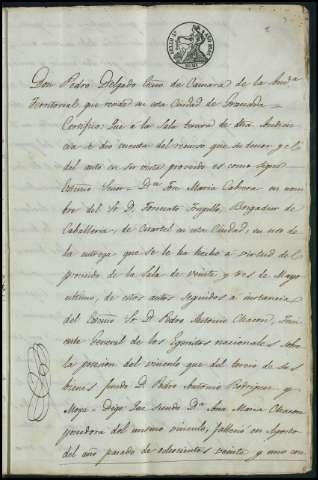 Don Pedro Delgado Essno de Camara de la Auda
Territorial que reside en esta Ciudad de Granada =
Certifico: Que á la Sala tercera de dha Audien
cia se dio cuenta del recurso que su tenor y el
del auto en su vista proveido es como sigue
Exsmo Senor = Dn Jose Maria Cabrera en nom
bre del Sr D. Fernando Trugillo, Brigadier de
Caballeria, de Cuartel en esta Ciudad, en uso de
la entrega que se le ha hecho á virtud de lo
proveido de la Sala de veinte y tres de Mayo
ultimo, de estos autos seguidos á instancia
del Exsmo Sr D. Pedro Antonio Chacon, Tini
ente General de los Egercitos nacionales sobre
la posesion del vinculo que del tercio de sus
bienes fundó D. Pedro Antonio Rodriguez y
Moya = Digo: Que siendo Da Ana Maria Chacon
poseedora del mismo vinculo, falleció en Agosto
del año pasado de ochocientos veinte y uno con